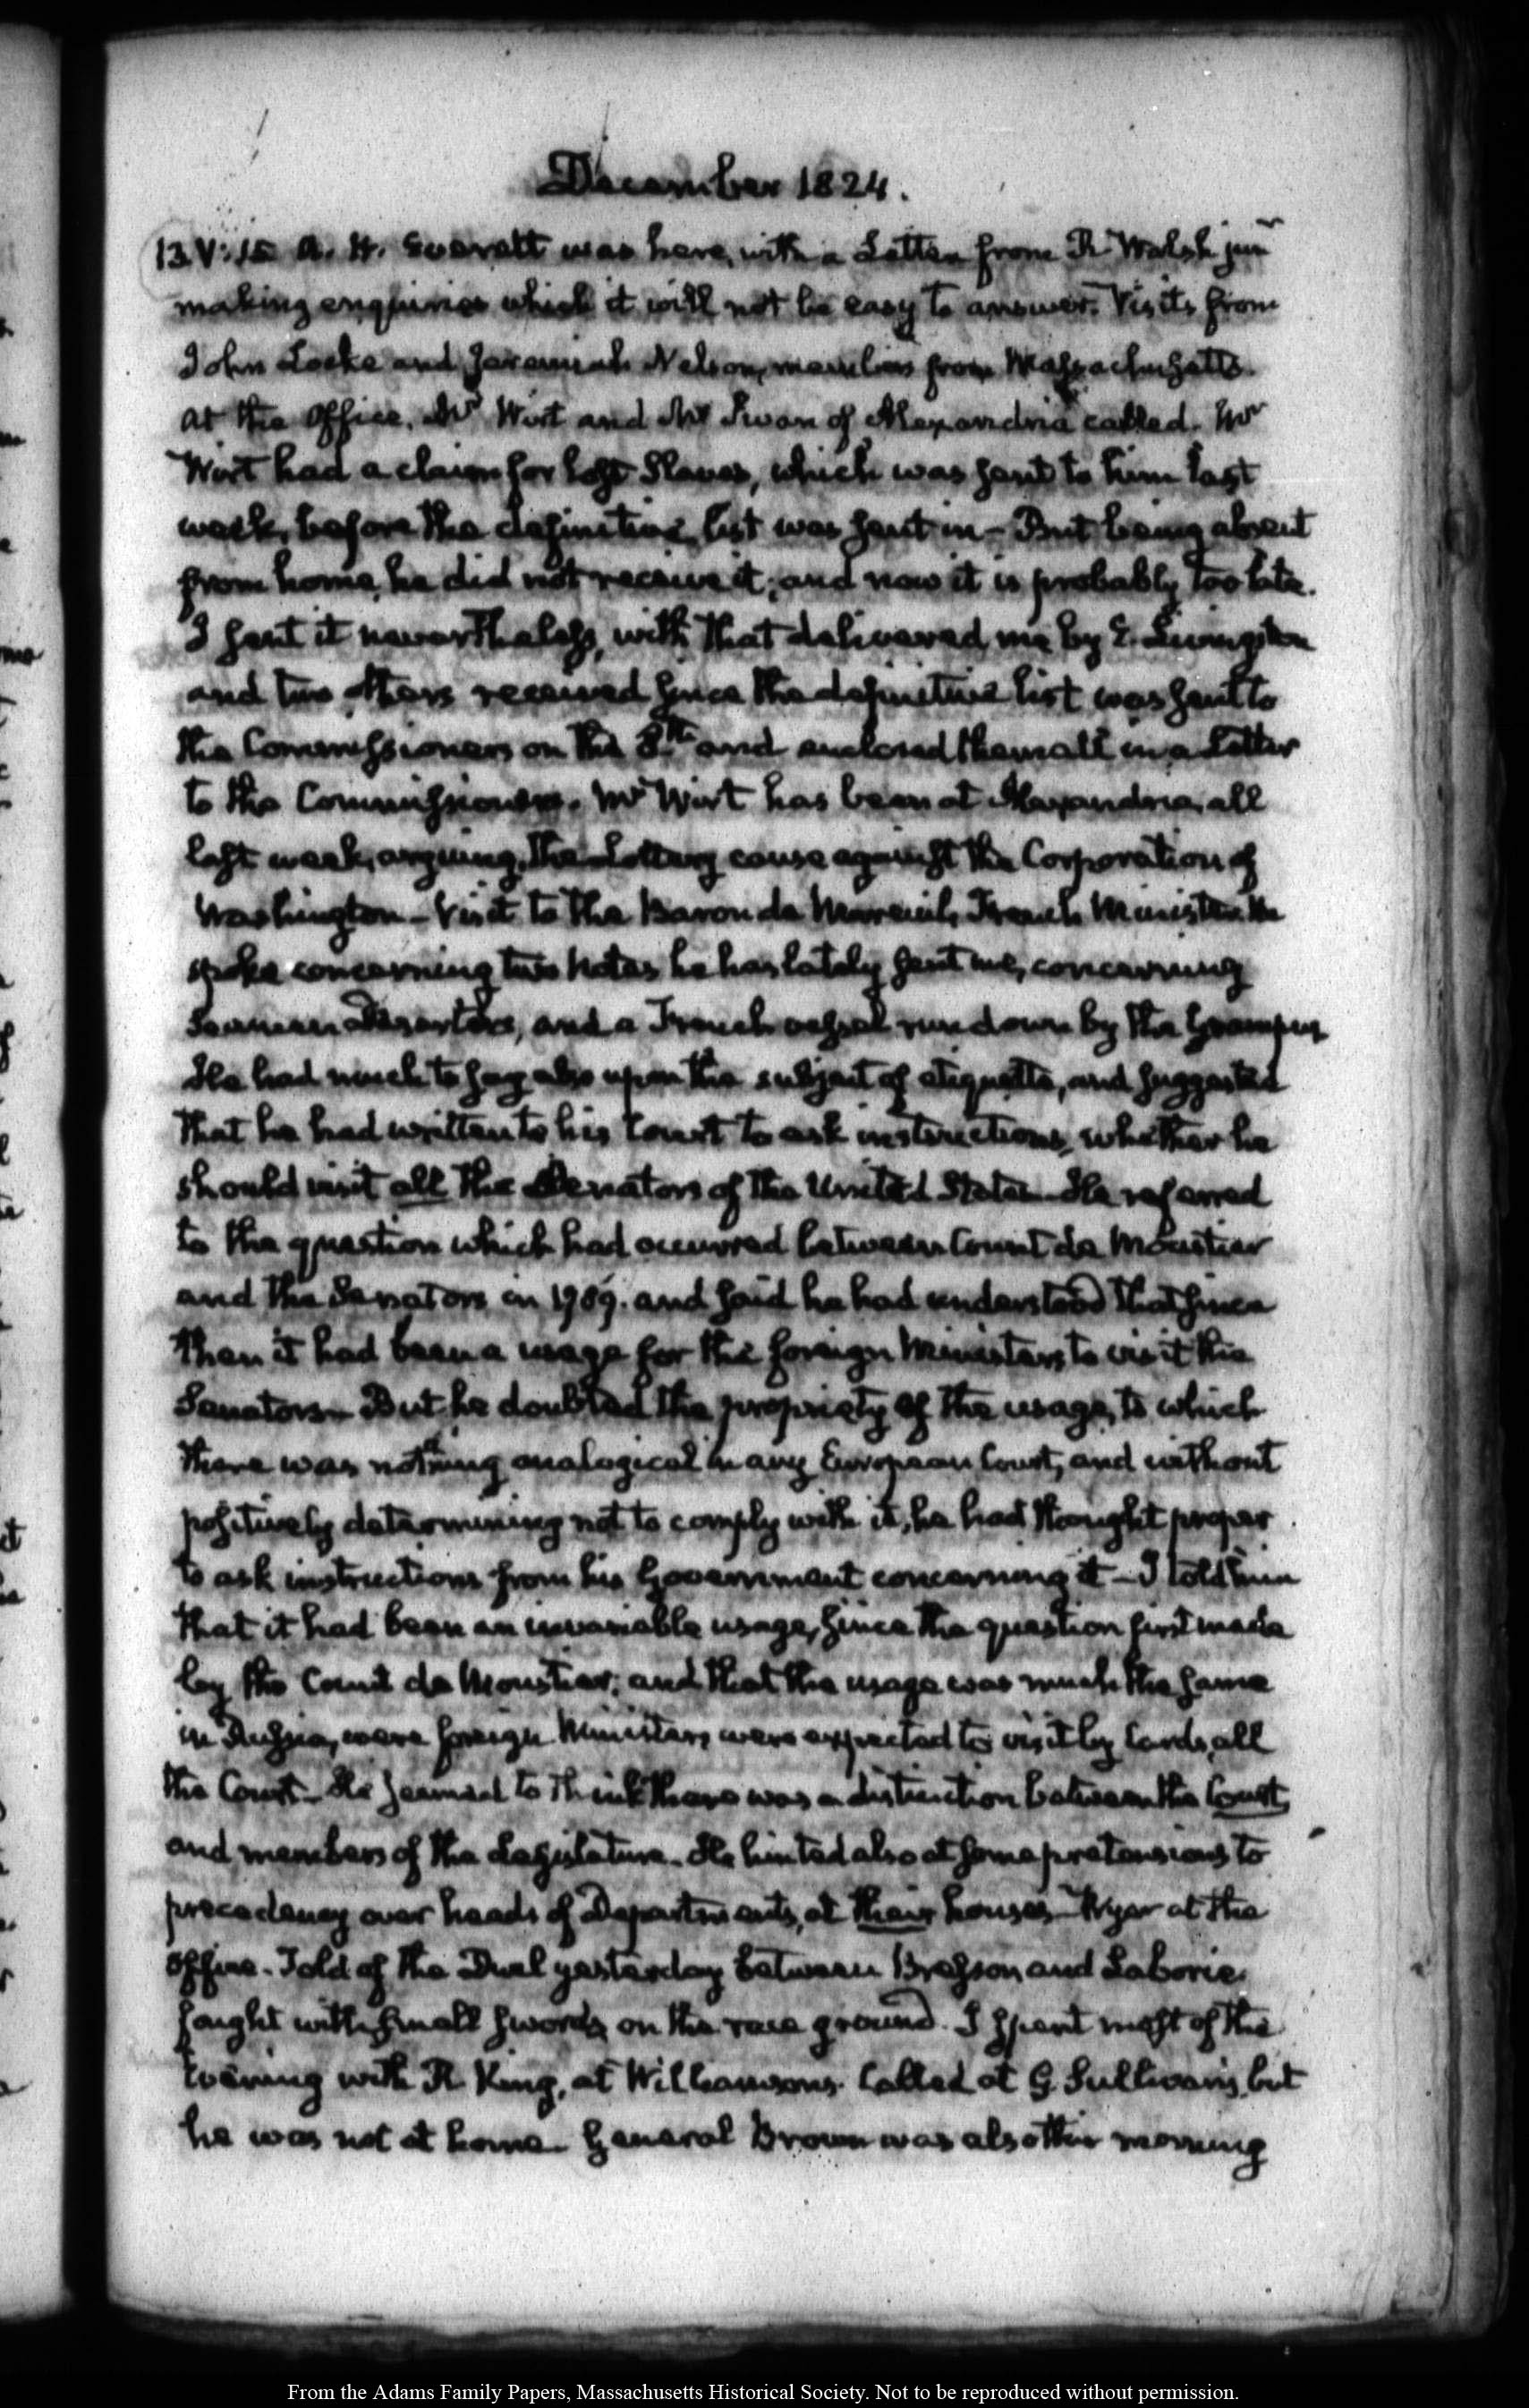 December 1824.
13. V:15 A. H. Everett was here, with a Letter from R Walsh junr
making enquiries which it will not be easy to answer. Visits from
John Locke and Jeremiah Nelson, members from Massachusetts.
At the Office. Mr Wirt and Mr Swan of Alexandria called. Mr
Wirt had a claim for lost Slaves, which was sent to him last
week, before the definitive list was sent in— But being absent
from home, he did not receive it; and now it is probably too late.
I sent it nevertheless, with that delivered me by E. Livingston
and two others received since the definitive list was sent to
the Commissioners on the 8th and enclosed them all in a Letter
to the Commissioners. Mr Wirt has been at Alexandria, all
last week, arguing, the Lottery cause against the Corporation of
Washington— Visit to the Baron de Mareuil, French Minister. He
spoke concerning two Notes he has lately sent me, concerning
Seamen Deserters, and a French vessel run down by the Grampus
He had much to say also upon the subject of etiquette, and suggested
that he had written to his Court to ask instructions, whether he
should visit all the Senators of the United States. He referred
to the question which had occurred between Count de Moustier
and the Senators in 1789. and said he had understood that since
then it had been a usage for the foreign Ministers, to visit the
Senators— But he doubted the propriety of the usage, to which
there was nothing analogical in any European Court, and without
positively determining not to comply with it, he had thought proper
to ask instructions from his Government concerning it— I told him
that it had been an invariable usage, since the question first made
by the Count de Moustier; and that the usage was much the same
in Russia, were foreign Ministers were expected to visit by Cards, all
the Court— He seemed to think there was a distinction between the Court,
and members of the Legislature— He hinted also at some pretensions to
precedency over heads of Departments, at their houses— Wyer at the
Office. Told of the Duel yesterday between Bresson and Laborie.
fought with small swords on the race ground. I spent most of the
Evening with R King, at Williamsons. Called at G. Sullivan's, but
he was not at home— General Brown was also this morning
From the Adams Family Papers, Massachusetts Historical Society. Not to be reproduced without permission.